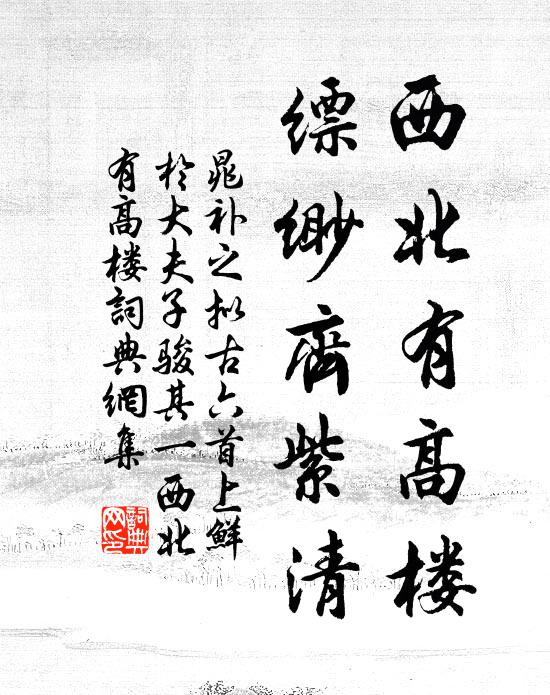 西北有高楼
缥缈齊紫清
晁补之拟古六首上鮮
於大夫子骏其一西北
有高楼詞典網集
詞典网印